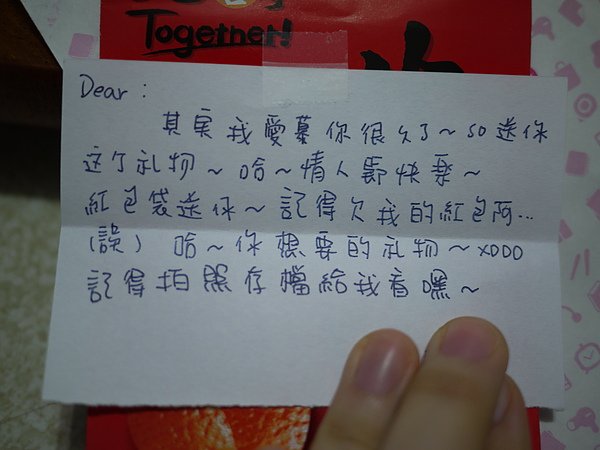 Together!
Dear :
其实我愛慕你很久了~ so 送你
这个礼物~ 哈~ 情人節快乗~
紅包袋送你~ 記得欠我的紅包阿...
(誤) 哈~ 你想要的礼物~ XDDD
記得拍照存檔給我看嘿~